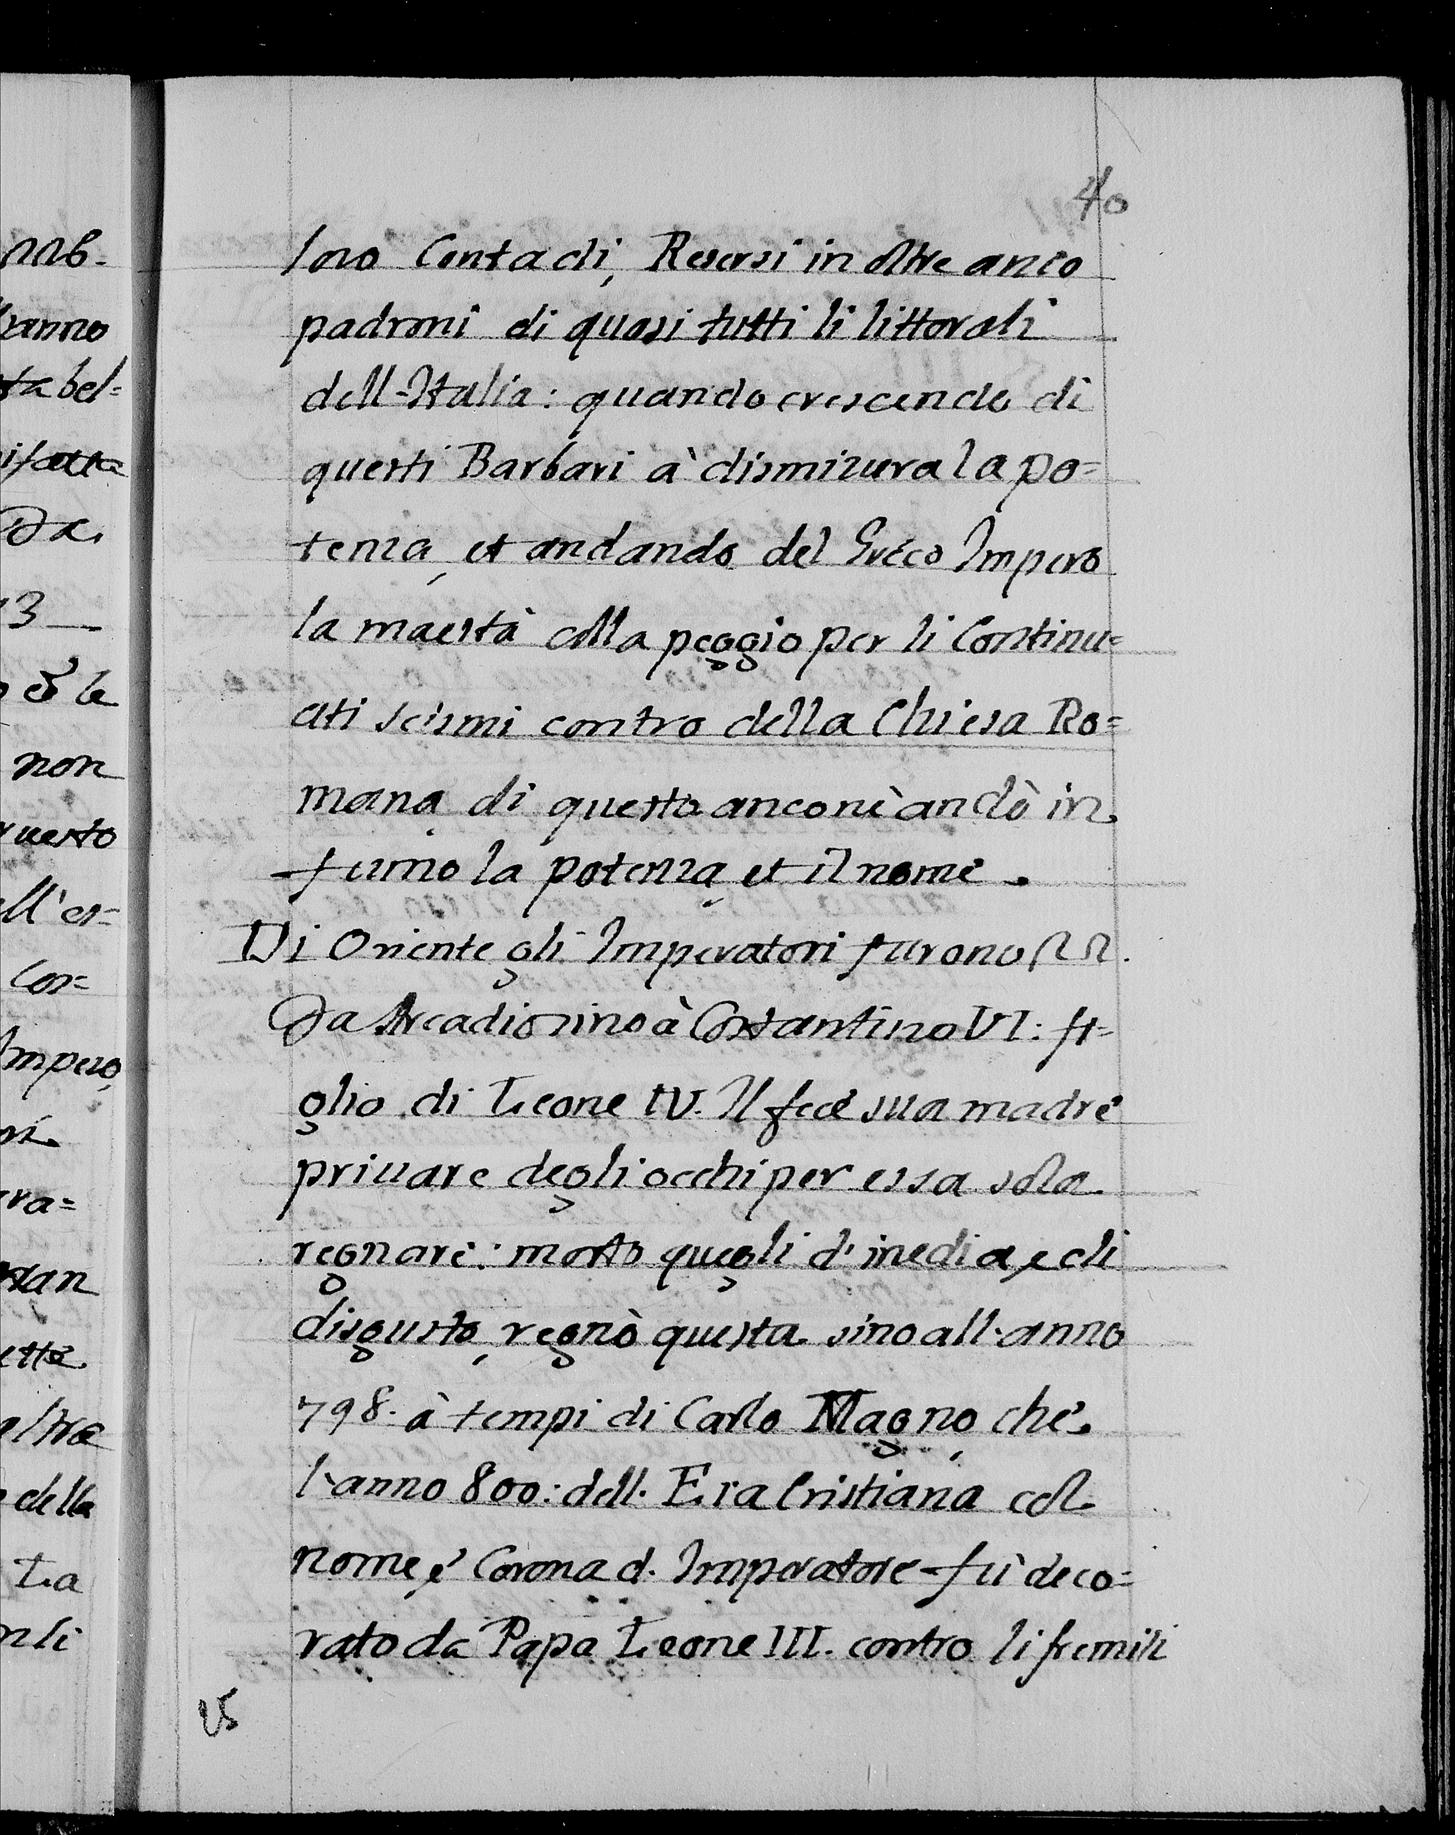 40
loro Contadi, Resersi in oltre anco
padroni di quasi tutti li littorali
dell-Italia: quando crescendo di
questi Barbari à dismizura la po=
tenza, et andando del Gréco Impero
la maestà alla peggio per li Continu=
ati scismi contro della Chiesa Ro=
mana, di questo ancone andò in
fumo la potenza, et il nome.
Di Oriente gli Imperatori furono 22.
Da Arcadio sino à Costantino VI: fi=
glio di Leone IV. Il fece sua madre
priuare degli occhi per essa sola
regnare: morto quegli d'inedia, e di
disgusto, regnò questa sino all'anno
798. à tempi di Carlo Magno, che
l'anno 800: dell' Era Cristiana col
nome, e Corona d' Imperatore fù deco=
rato da Papa Leone III. contro li fremiti
nnb.
anno
ta bel=
Da
13
& le
non
questo
ll'es=
Cos=
Impero,
ra=
stan
della
La
nli